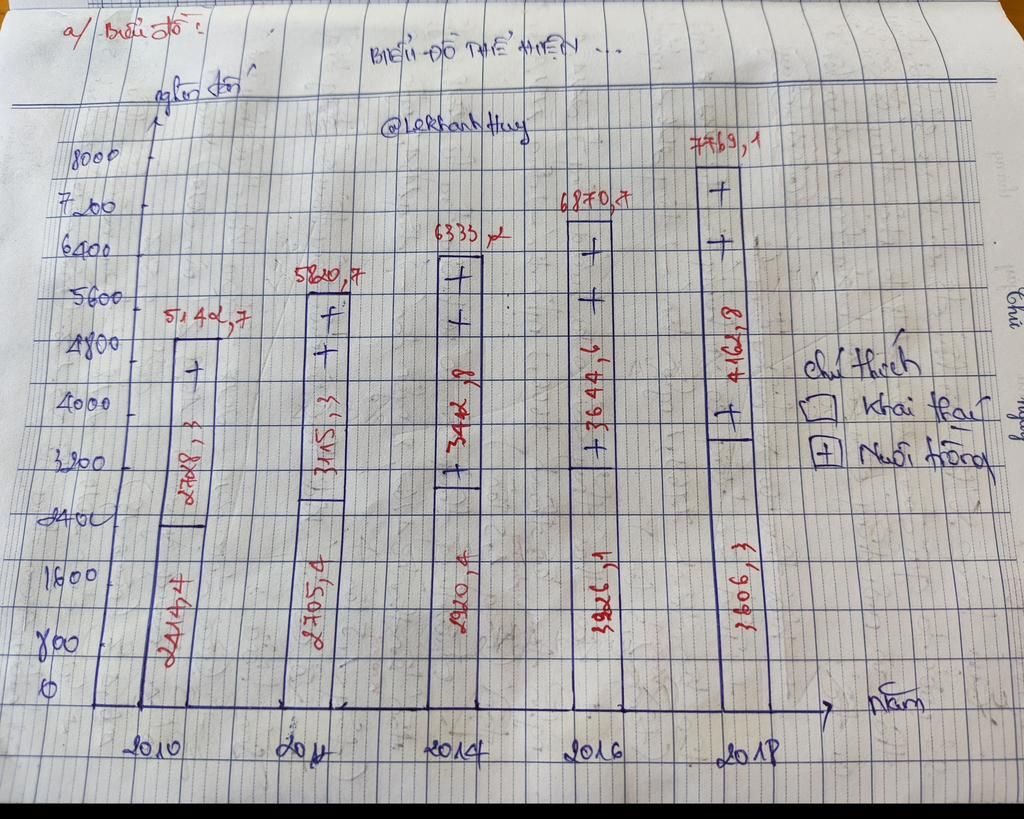 a/ Biểu đồ:
BIỂU ĐỒ THỂ HIỆN ...
nghìn tấn
@LeKhanhHuy
8000
7200
6400
5600
4800
4000
3200
2400
1600
800
0
5142,7
2728,3
2414,4
5820,7
3115,3
2705,4
6333,2
3412,8
2920,4
6870,7
3644,6
3226,1
7769,1
4162,8
3606,3
chú thích
Khai thác
+ Nuôi trồng
2010
2014
2016
2018
năm